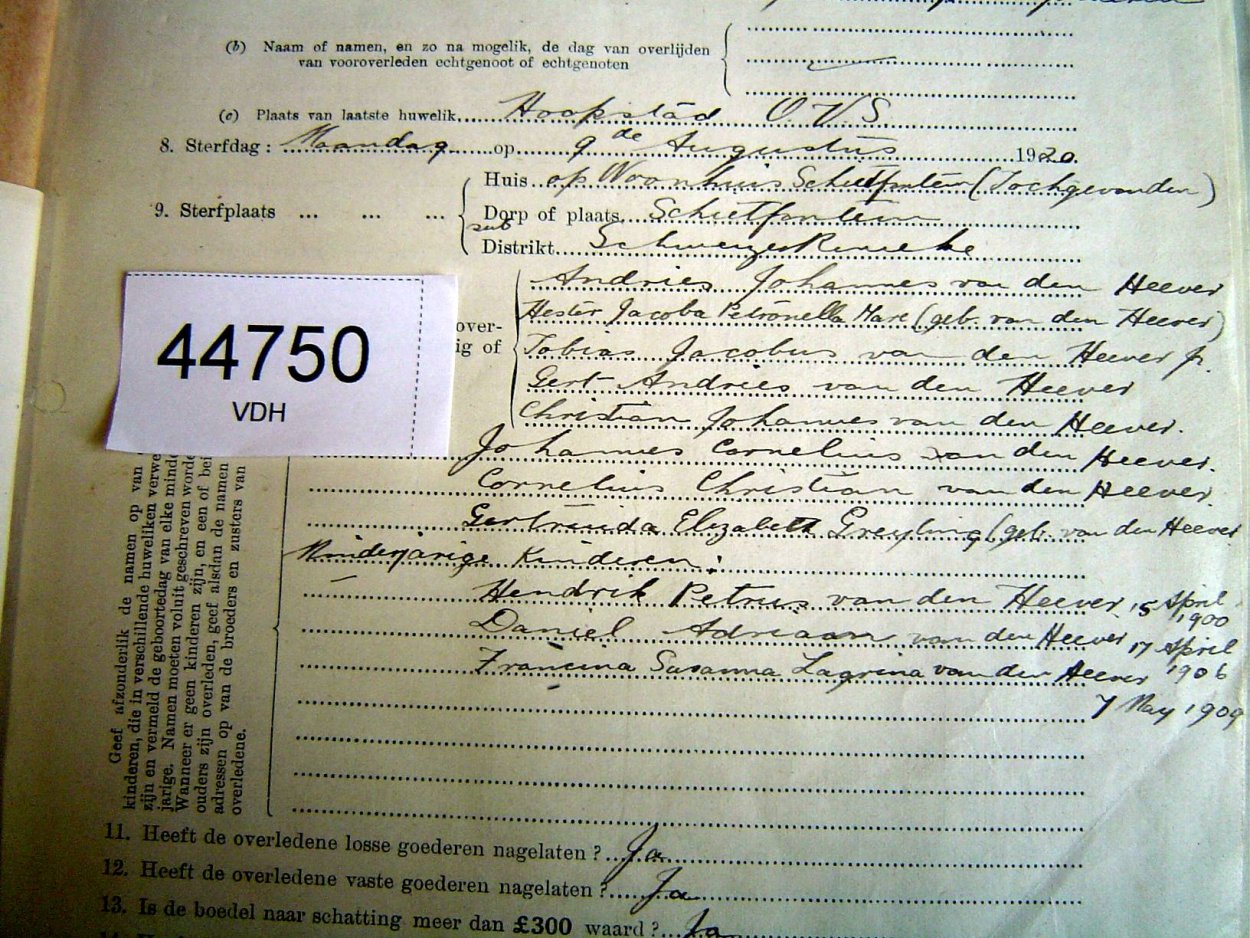 (b) Naam of namen, en zo na mogelik, de dag van overlijden
van vooroverleden echtgenoot of echtgenoten
(c) Plaats van laatste huwelik Hoopstad O.V.S.
8. Sterfdag: Maandag op 9de Augustus 1920.
9. Sterfplaats ... ... ...
Huis op Woonhuis Schietfontein (Tochgevonden)
Dorp of plaats Schietfontein
sub
Distrikt Schweizer Reneke
Andries Johannes van den Heever
Hester Jacoba Petronella Mare (geb. van den Heever)
over-
ig of
Tobias Jacobus van den Heever jr.
Gert Andries van den Heever
Christian Johannes van den Heever.
Johannes Cornelius van den Heever.
Cornelius Christian van den Heever.
Gertruida Elizabeth Greyling (geb. van den Heever
Minderjarige Kinderen:
Hendrik Petrus van den Heever, 15 April 1900
Daniel Adriaan van den Heever 17 April 1906
Francina Susanna Lagrina van den Heever
7 May 1909
44750
VDH
Geef afzonderlik de namen op van
kinderen, die in verschillende huweliken verwe
zijn en vermeld de geboortedag van elke minde
jarige. Namen moeten voluit geschreven worde
Wanneer er geen kinderen zijn, en een of bei
ouders zijn overleden, geef alsdan de namen
adressen op van de broeders en zusters van
overledene.
11. Heeft de overledene losse goederen nagelaten? Ja
12. Heeft de overledene vaste goederen nagelaten? Ja
13. Is de boedel naar schatting meer dan £300 waard? Ja